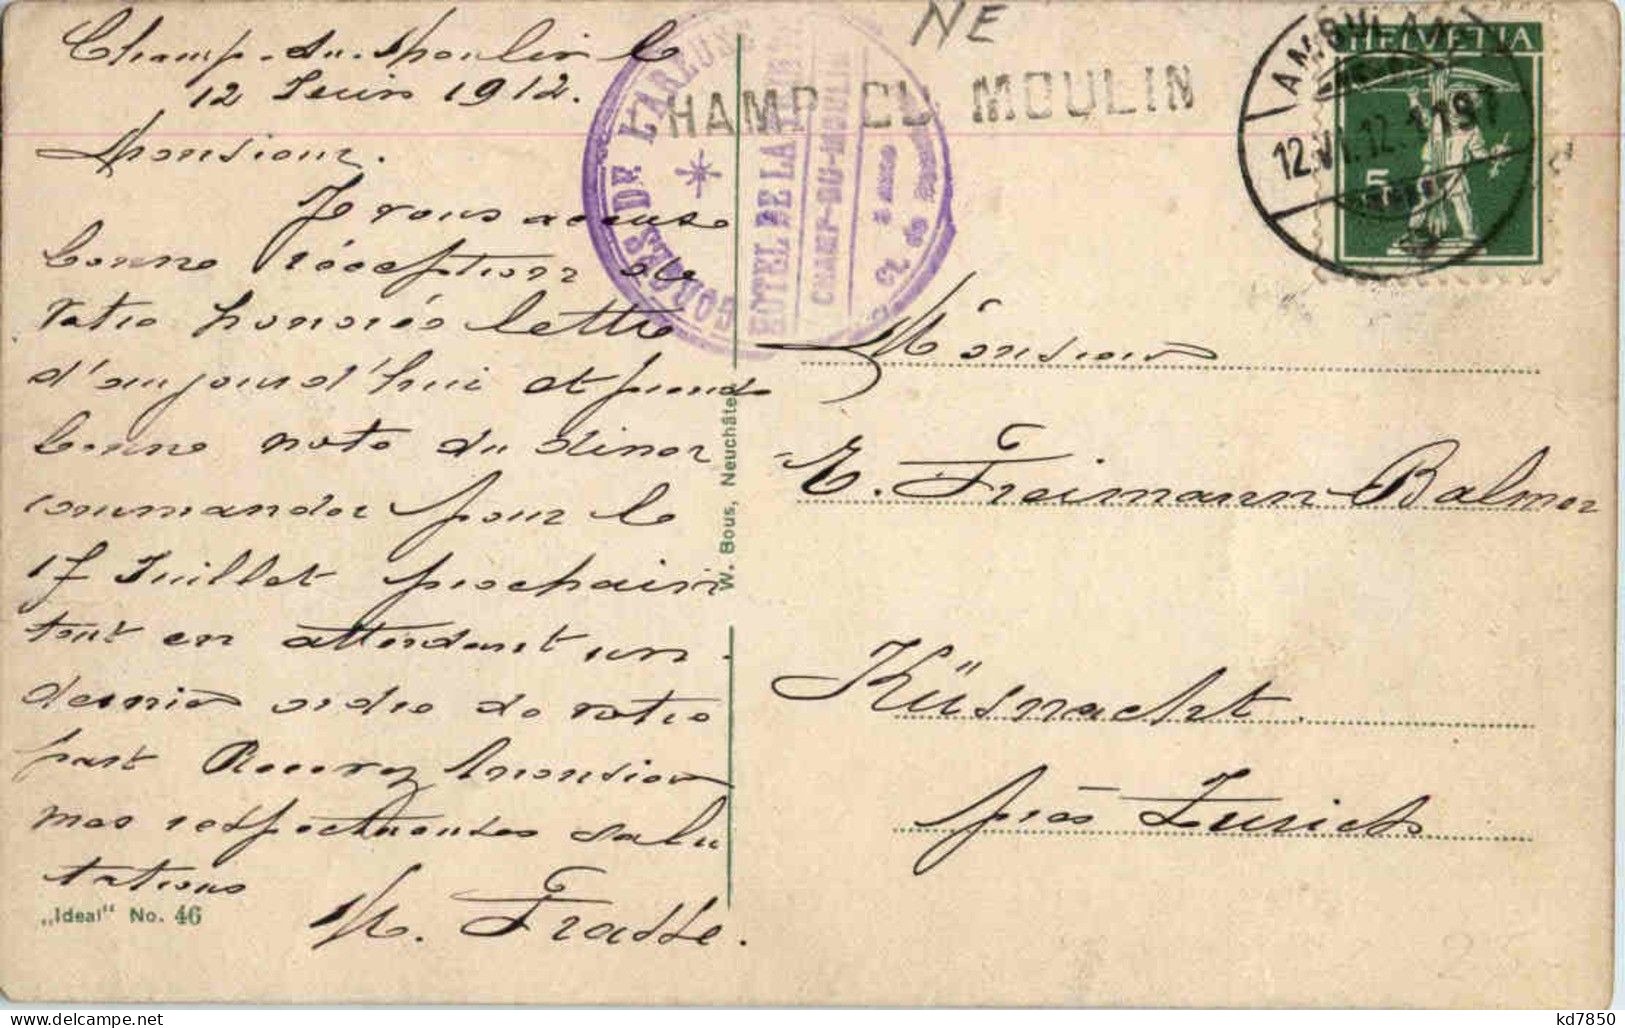 Champ-du-Moulin le
12 Juin 1912.
Monsieur.
Je vous accuse
bonne réception de
votre honorés lettre
d'aujourd'hui et prends
bonne note du diner
commander pour le
17 Juillet prochain
tout en attendant un
dernier ordre de votre
part Recevez monsieur
mes respectueuses salu
tations
M. Frasse.
„Ideal" No. 46
W. Bous, Neuchâtel
GORGES DE L'AREUSE
HOTEL DE LA
CHAMP-DU-MOULIN
Ct. de
NE
HAMP DU MOULIN
AMBULANT
12.VI.12.
HELVETIA
5
Monsieur
E. Freimann Balmer
Küsnacht
près Zurich
kd7850